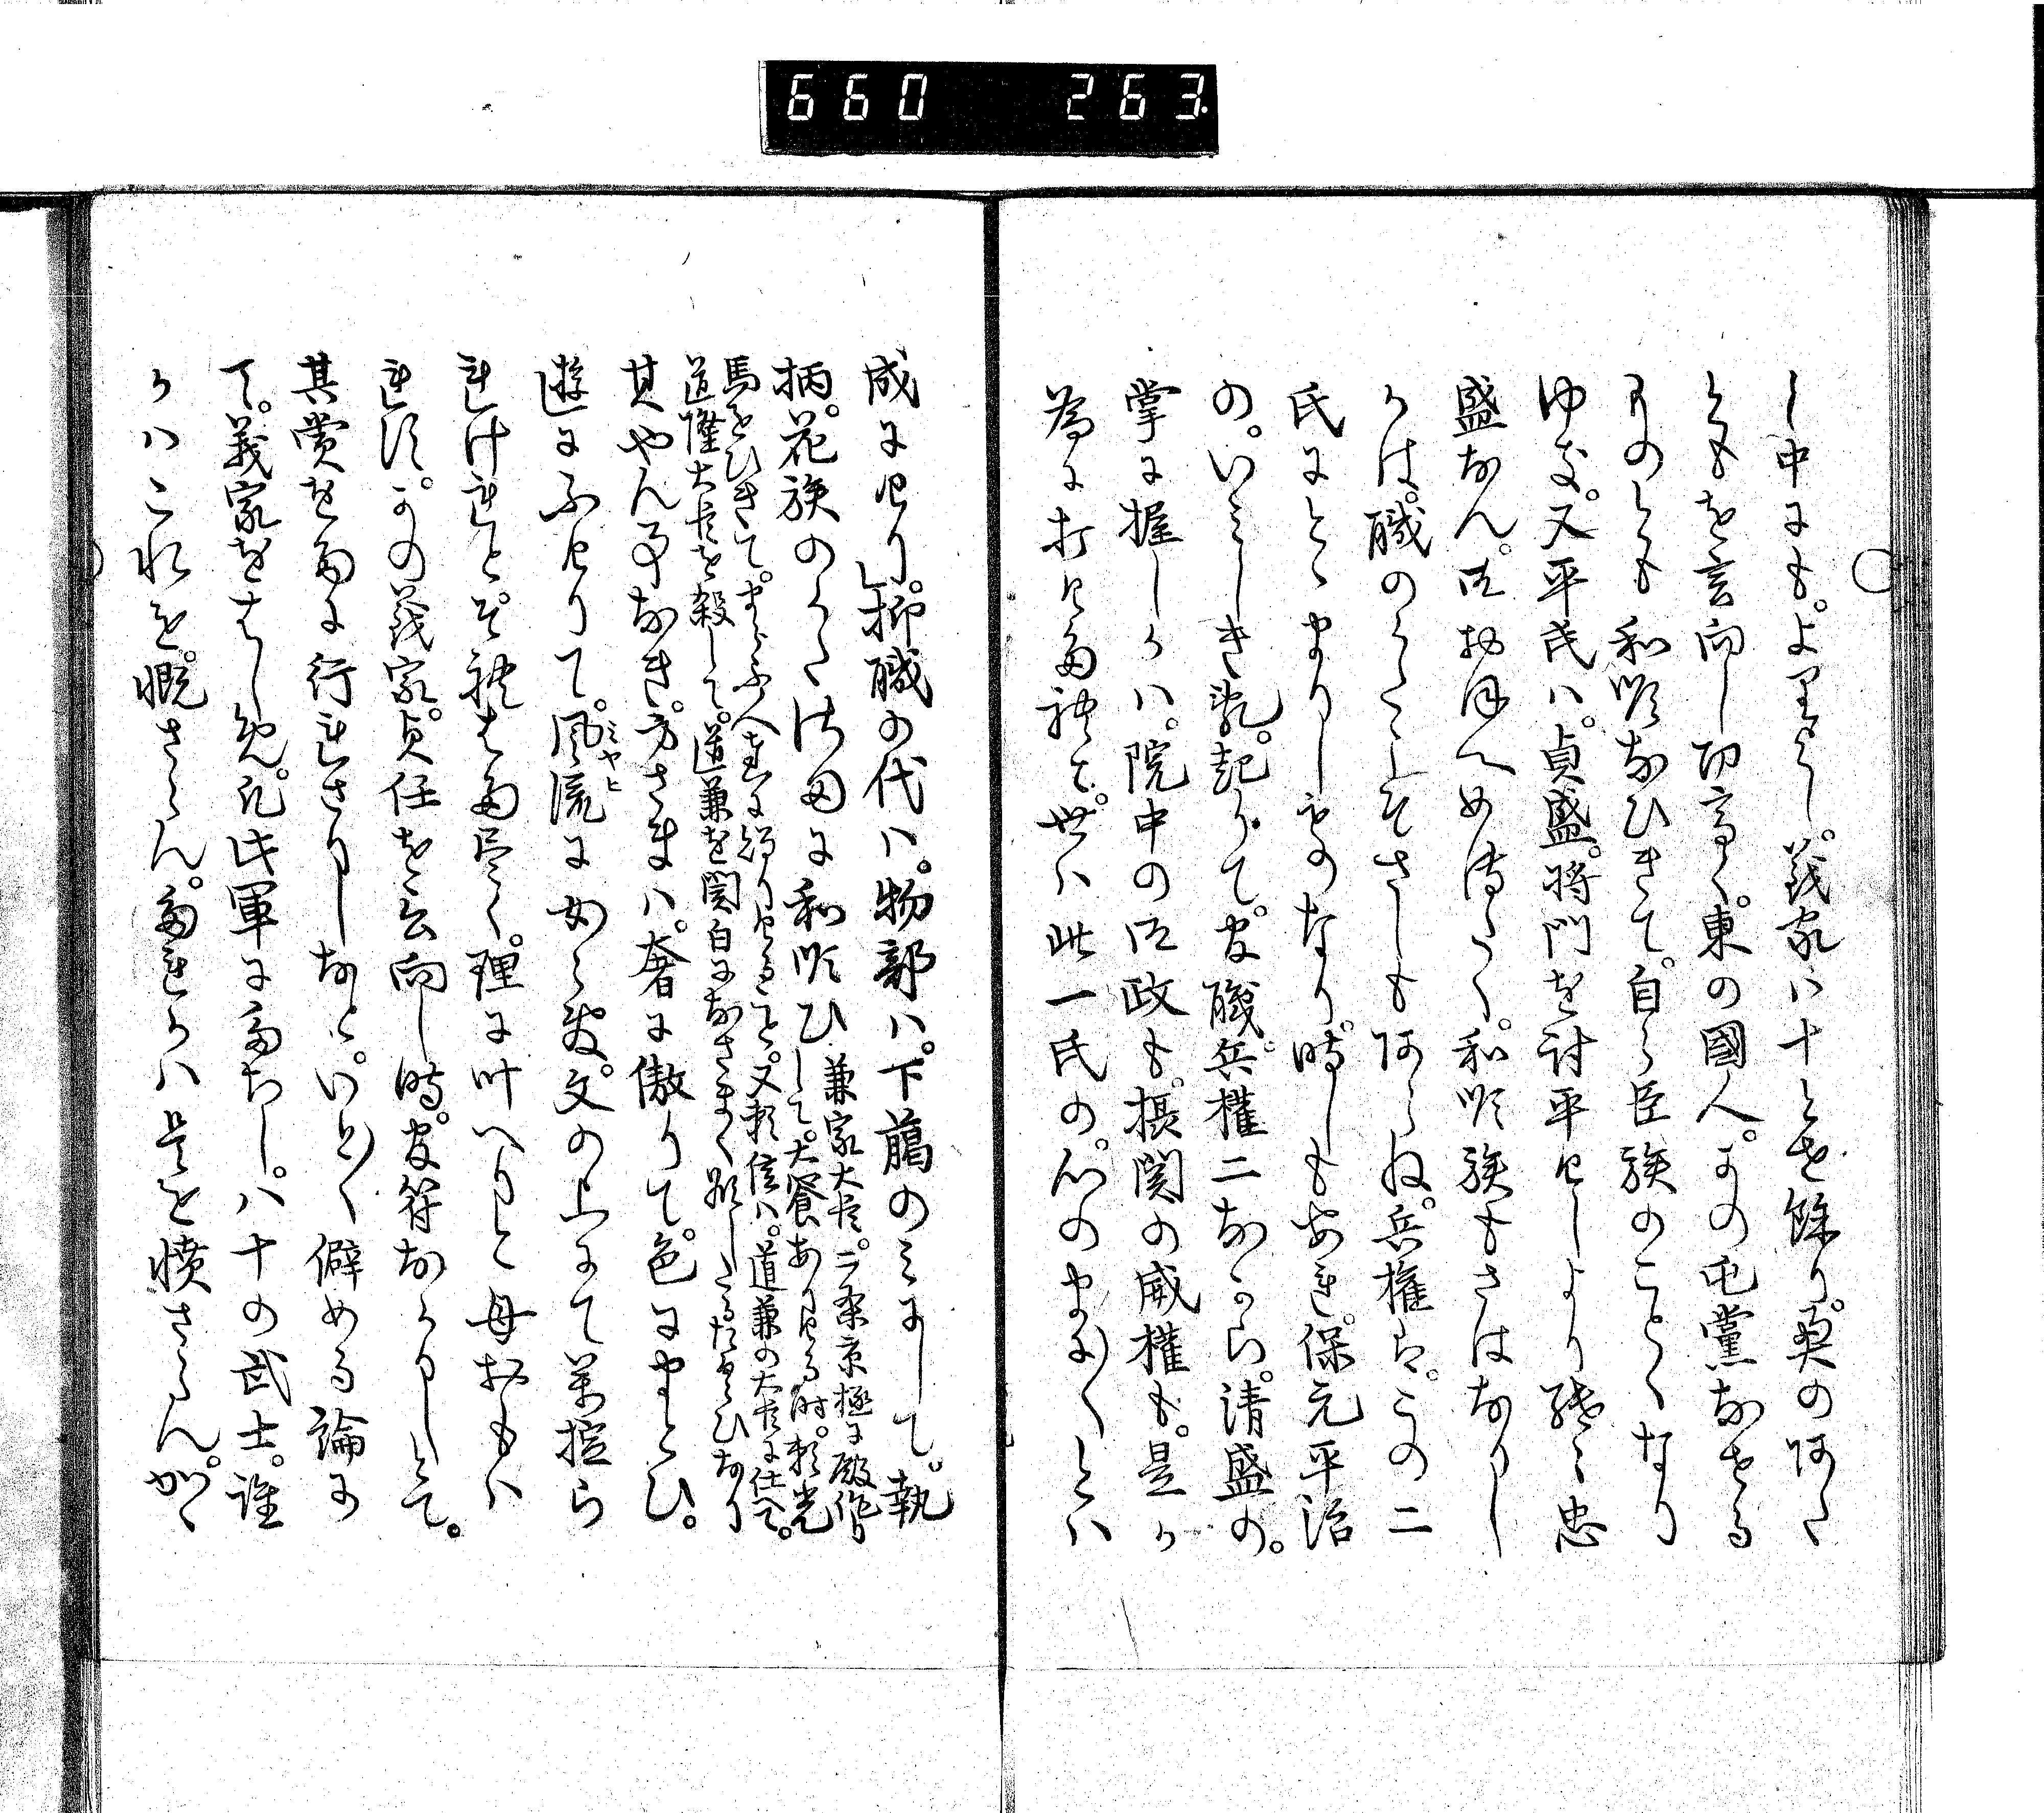 660 263
し中にも。よりよし。義家ハ十とせ餘り。奥のあた
ともを言向し功高く。東の國人。その屯黨なせる
ものとも和順なひきて。自ら臣族のことくなり
ゆき。又平氏ハ。貞盛。将門を討平せしより後々忠
盛なん。御おほえめてたく。和順族もさはなりし
かは。職のうへこそさしもあらね。兵權は。この二
氏にとゝまりしものなり。時しもあれ。保元平治
の。いみしき乱。起りて。官職。兵權二なから。清盛の。
掌に握しかハ。院中の御政も。摂関の威權も。是か
為に打たれて。世ハ此一氏の。心のまに〳〵とハ
成にけり。抑職の代ハ。物部ハ。下臈のミにして。執
柄。花族のうへ付に和順ひ
兼家大臣。二条京極に殿作り
して。大饗ありける時。頼光
馬をひきて。まらふ人達に贈りけること。又頼信ハ。道兼の大臣に仕へて。
道隆大臣を殺して。道兼を関白になさまく欲したるたくひなり
其やん事なき。方さまハ。奢に傲りて。色にまとひ。
遊にふけりて。風流にめて歎。文の上にて万控ら
ミヤヒ
れけれとそれはた尽く。理に叶へりと毋おもハ
れす。かの義家。貞任を言向し時。官符なかりしとて。
其賞をたに行れさりしなと。いとゝ僻める論に
て。義家をはしめ。凡此軍にたちし。八十の武士。誰
かハこれを。慨さらん。たれかハ是を憤さらん。かゝ